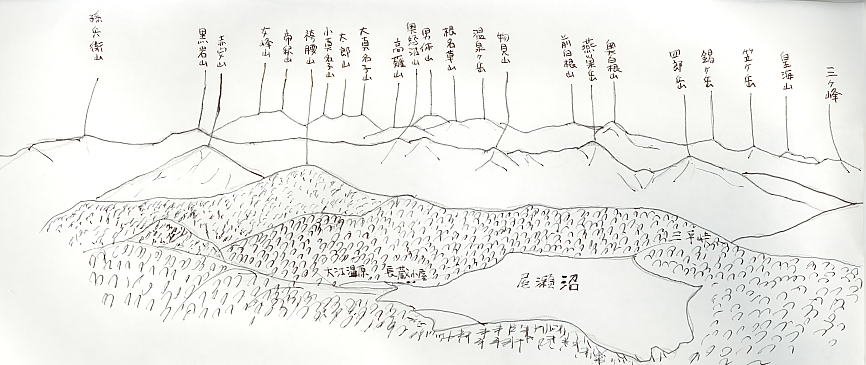 孫兵衛山
黒岩山
赤安山
女峰山
帝釈山
袴腰山
小真名子山
太郎山
大真名子山
高薙山
奥鬼怒沼山
男体山
根名草山
温泉ヶ岳
物見山
前白根山
燕巣岳
奥白根山
四郎岳
錫ヶ岳
笠ヶ岳
皇海山
三ヶ峰
三平峠
大江湿原
長蔵小屋
尾瀬沼